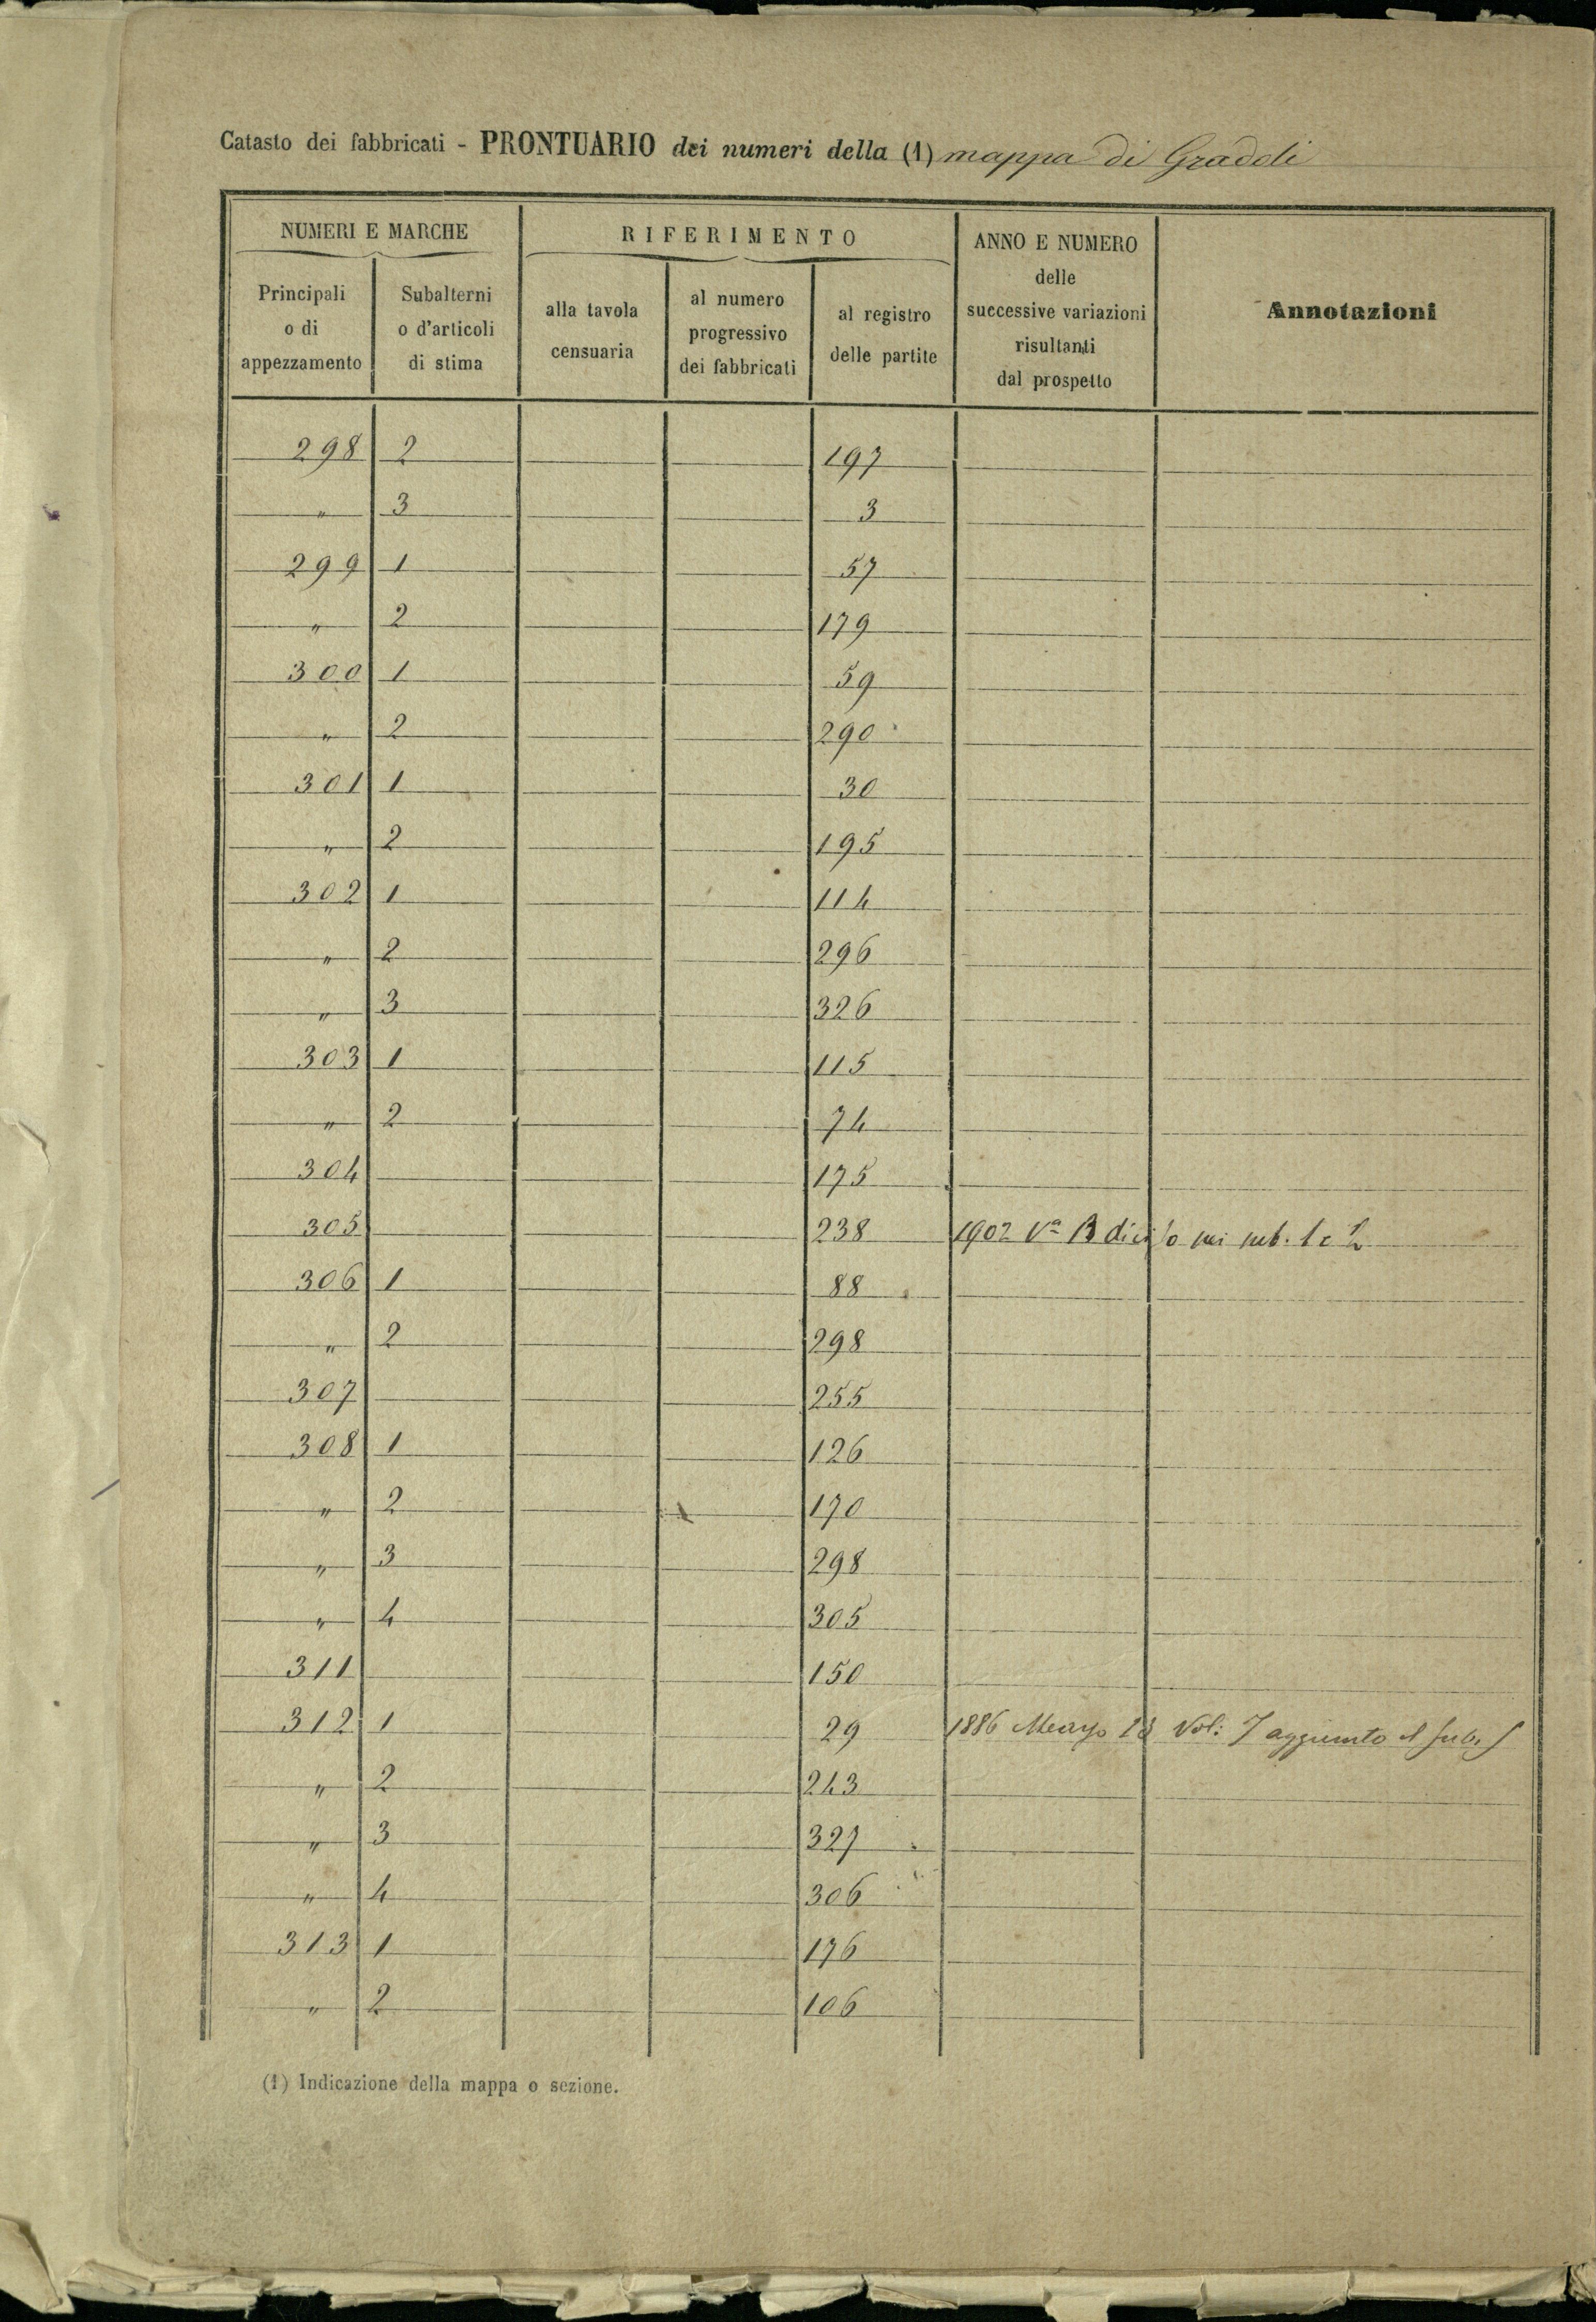 Catasto dei fabbricati - PRONTUARIO dei numeri della (1) mappa di Gradoli
NUMERI E MARCHE
Principali o di appezzamento
Subalterni o d'articoli di stima
RIFERIMENTO
alla tavola censuaria
al numero progressivo dei fabbricati
al registro delle partite
ANNO E NUMERO delle successive variazioni risultanti dal prospetto
Annotazioni
298 2 197
" 3 3
299 1 57
" 2 179
300 1 59
" 2 290
301 1 30
" 2 195
302 1 114
" 2 296
" 3 326
303 1 115
" 2 74
304 175
305 238 1902 Vª B diviso nei sub. 1 e 2
306 1 88
" 2 298
307 255
308 1 126
" 2 170
" 3 298
" 4 305
311 150
312 1 29 1886 Marzo 18 Vol: 7 aggiunto il sub. 5
" 2 243
" 3 327
" 4 306
313 1 176
" 2 106
(1) Indicazione della mappa o sezione.